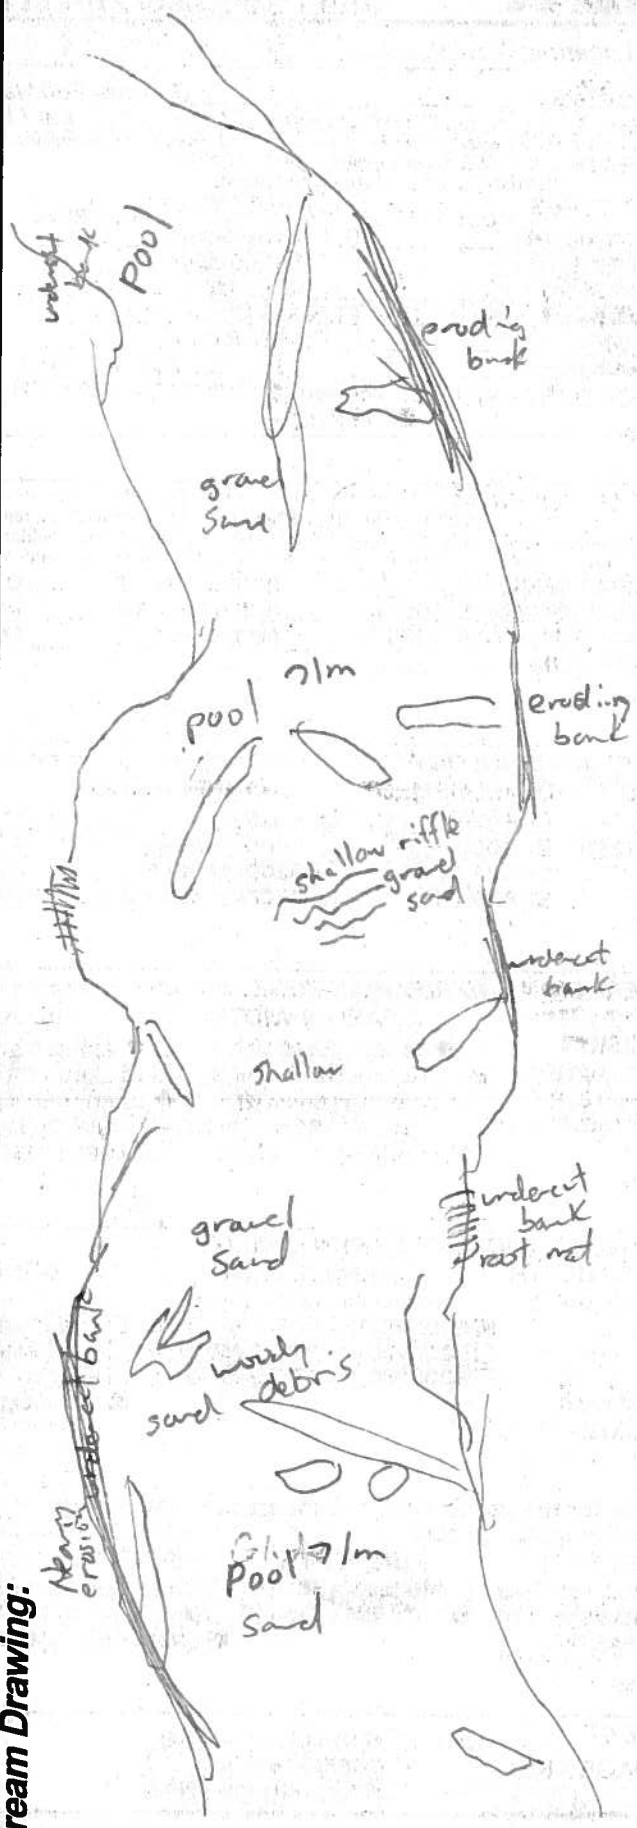 undercut
bank
Pool
eroding
bank
gravel
Sand
>1m
pool
eroding
bank
shallow riffle
gravel
sand
undercut
bank
shallow
undercut
bank
root mat
gravel
Sand
undercut bank
woody
debris
sand
Heavy
erosion
Glide
Pool >1m
Sand
ream Drawing: